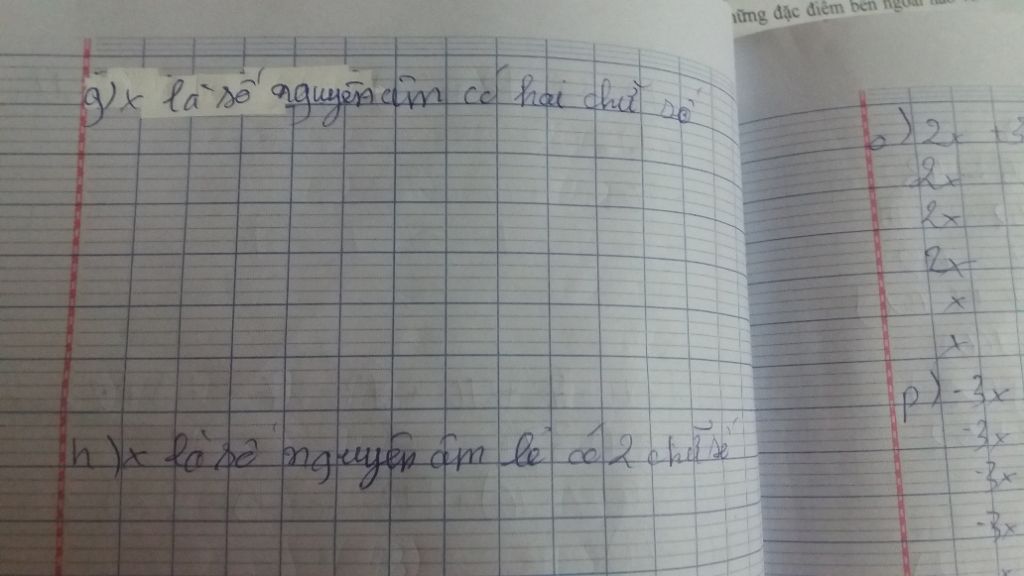 những đặc điểm bên ngoài nào
g) x là số nguyên âm có hai chữ số
h) x là số nguyên âm lẻ có 2 chữ số
o) 2x + 3
2x
2x
2x
x
x
p) -3x
-3x
-3x
-3x